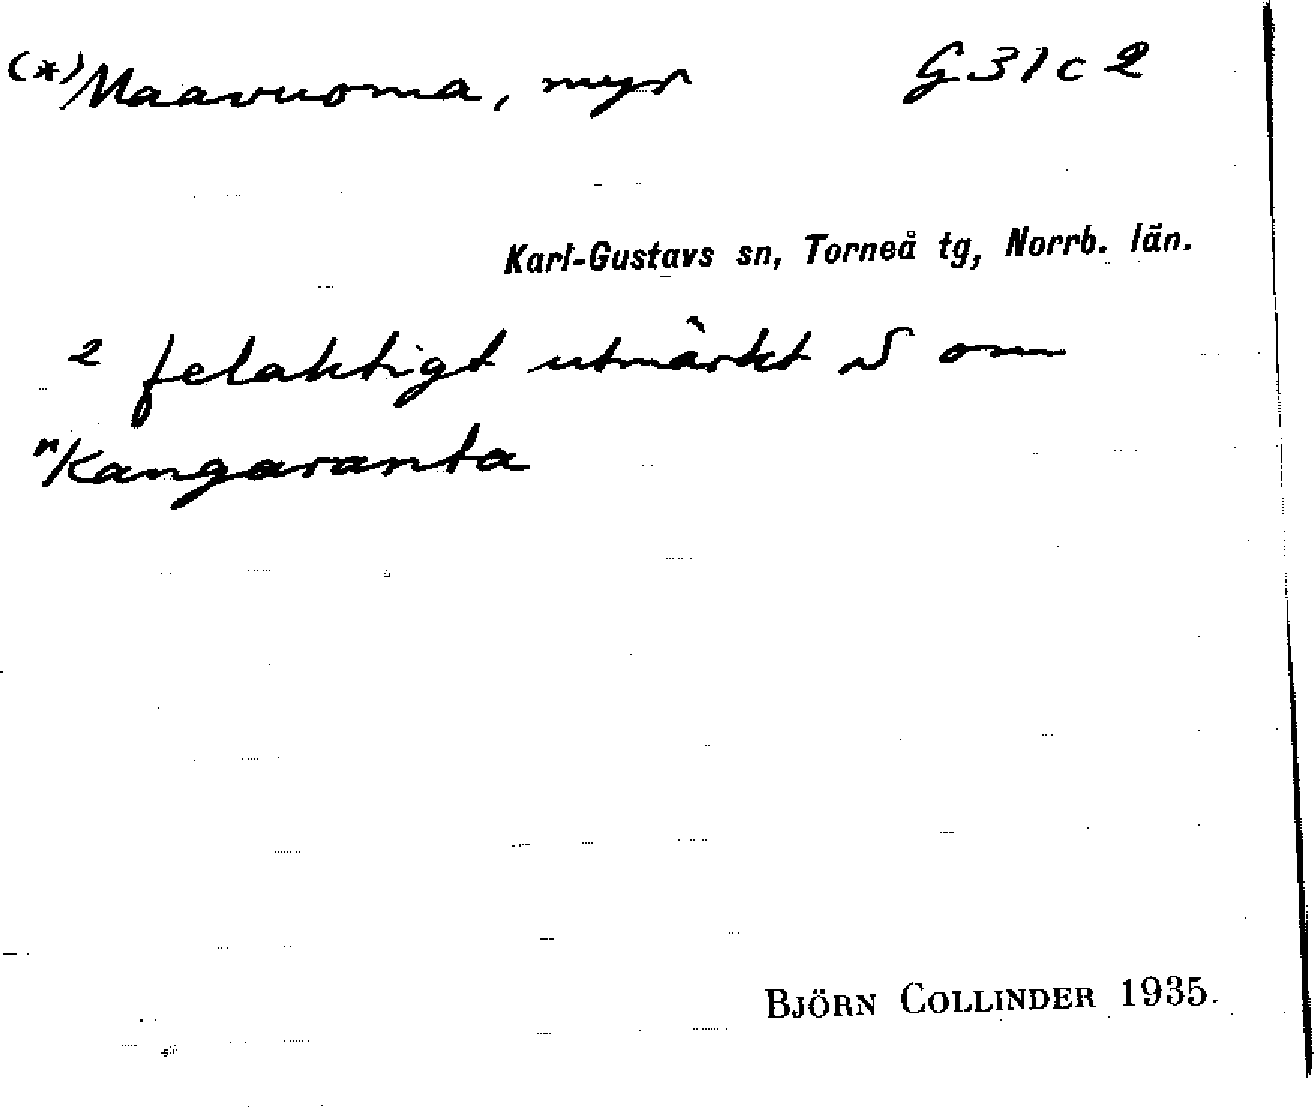 (*) Maavuoma, myr G 31 c 2
Karl-Gustavs sn, Torneå tg, Norrb. län.
2 felaktigt utmärkt S om
"Kangaranta
BJÖRN COLLINDER 1935.